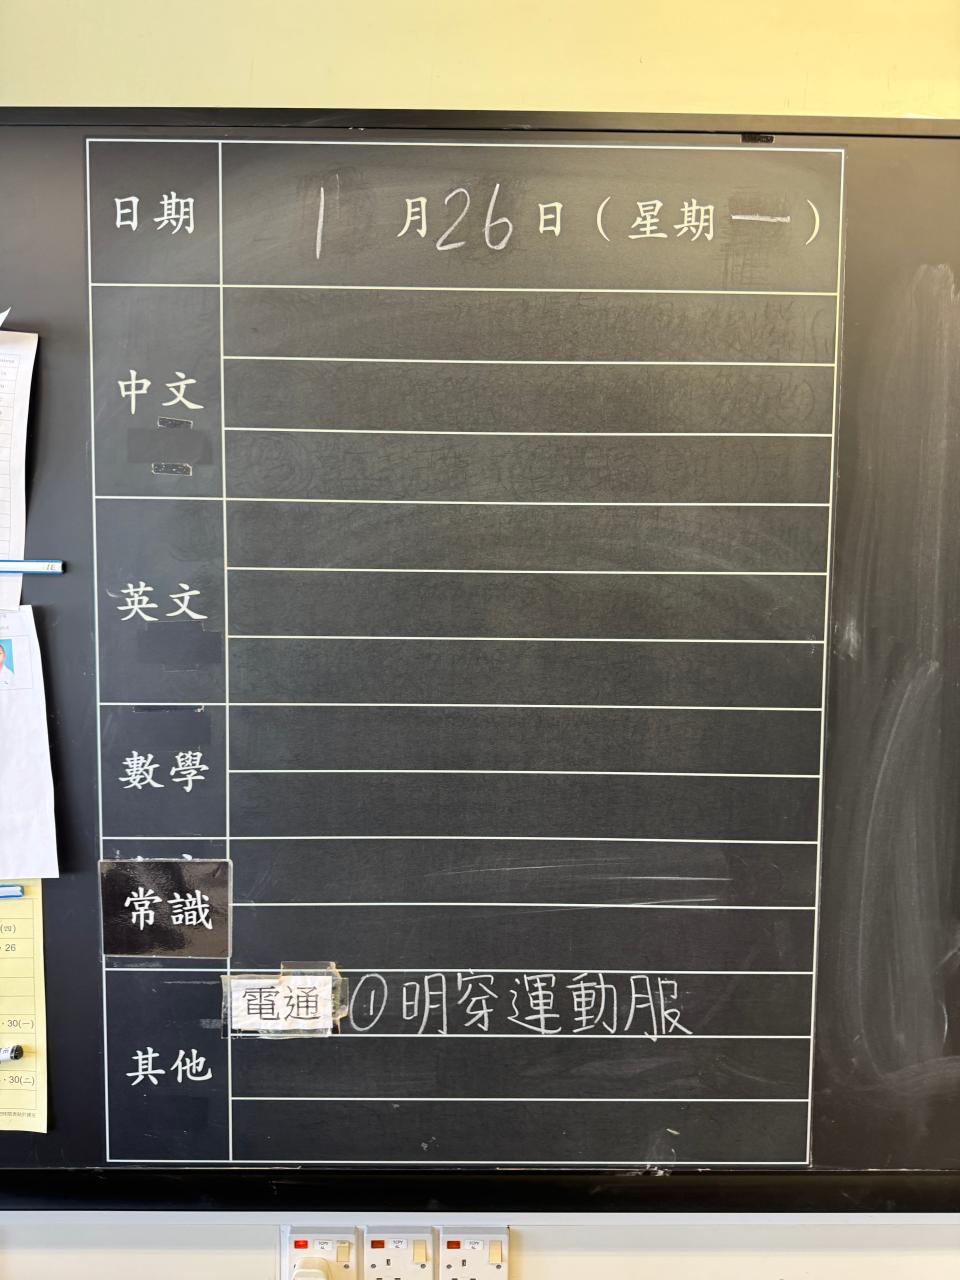 日期 1月26日（星期一）
中文
英文
數學
常識
其他 電通 ①明穿運動服
IE
(四)
26
30(一)
30(二)